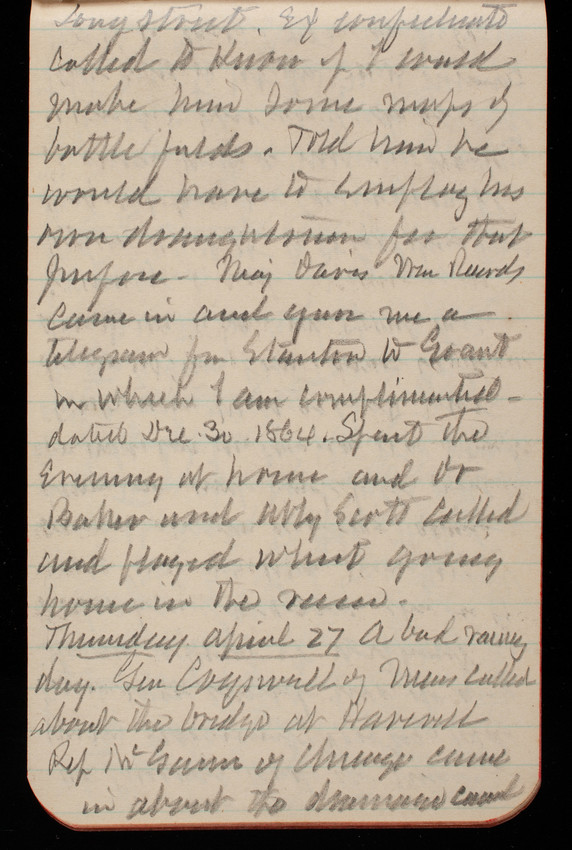 Longstreet. Ex confederate
called to know if I could
make him some maps of
battle fields. Told him he
would have to employ his
own draughtsman for that
purpose - Maj Davis War Records
came in and gave me a
telegram fm Stanton to Grant
in which I am complimented -
dated Dec. 30. 1864. Spent the
Evening at home and Dr
Baker and Abby Scott called
and played whist going
home in the rain.
Thursday april 27 A bad rainy
day. Gen Cogswell of Mass called
about the bridge at Haverill
Rep McGann of Chicago came
in about the drainage canal